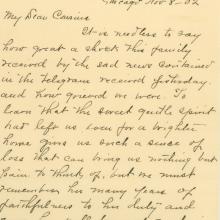 Chicago Nov 8-02
My Dear Cousins
It is needless to say
how great a shock this family
received by the sad news contained
in the Telegram received yesterday
and how grieved we were. To
learn that the sweet gentle spirit
had left us even for a brighter
home gives us such a sense of
loss that can bring us nothing but
pain to think of, but we must
remember his many years of
faithfulness to his duty and